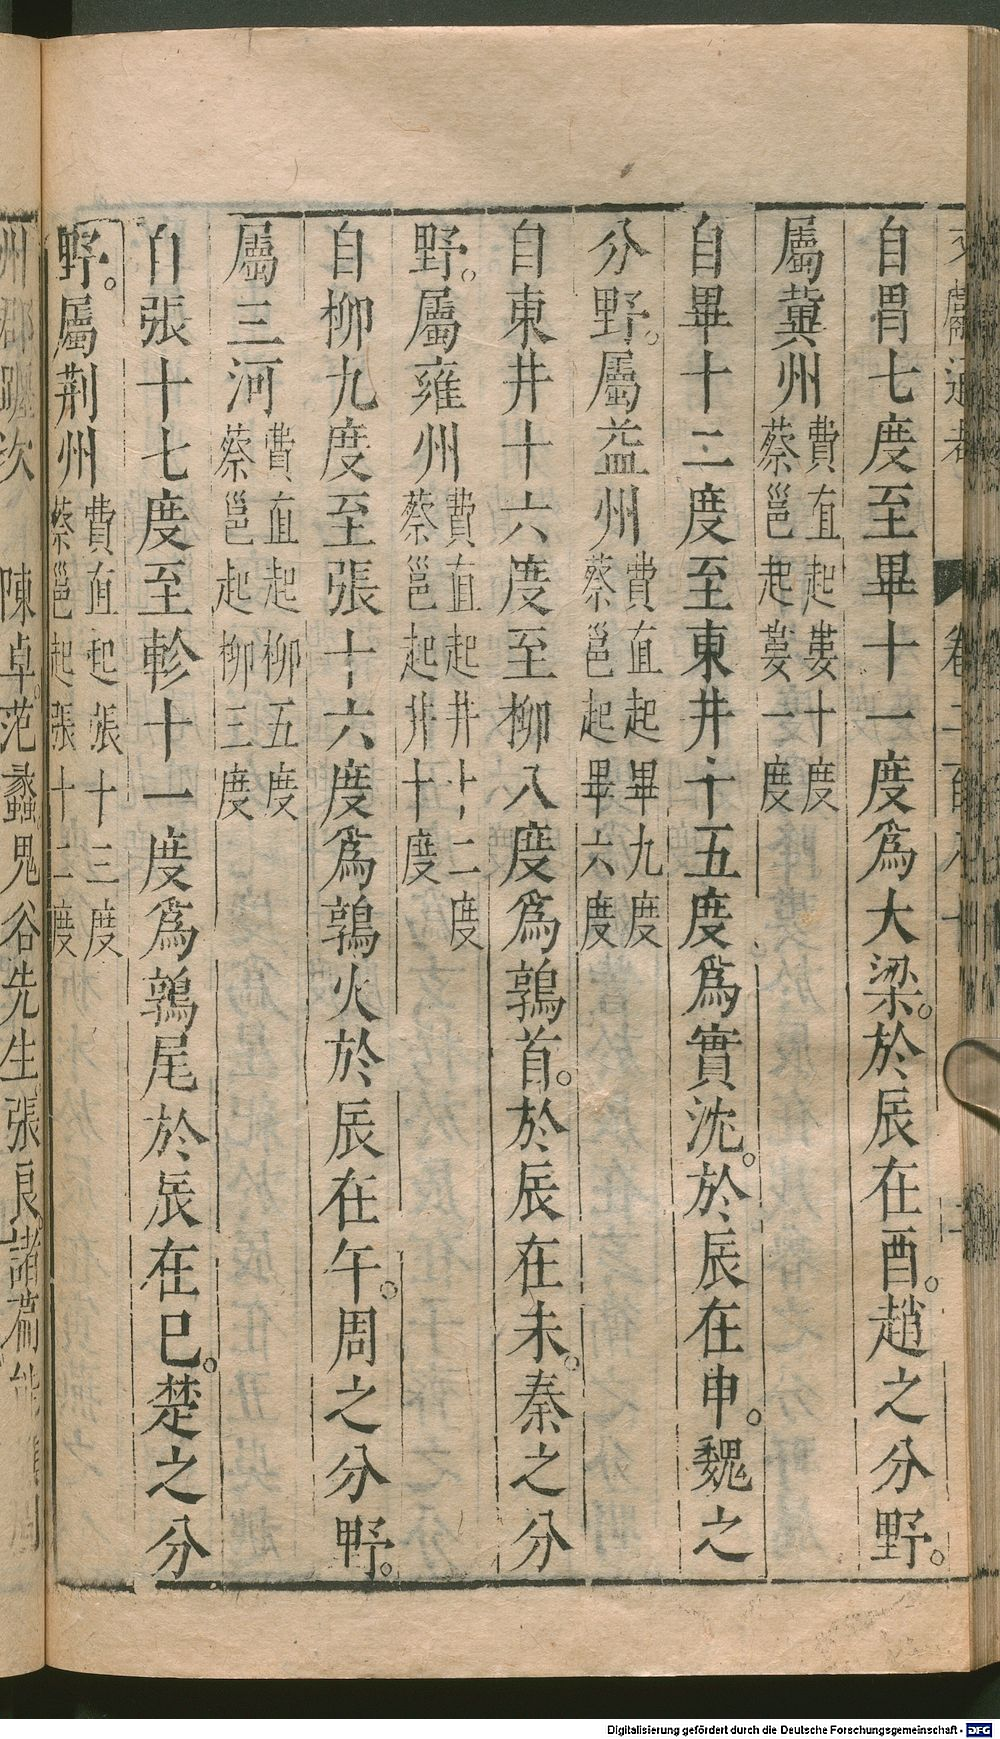 文獻通考 卷二百八十
自胃七度至畢十一度爲大梁於辰在酉趙之分野
屬冀州費直起婁十度蔡邕起婁一度
自畢十二度至東井十五度爲實沈於辰在申魏之
分野屬益州費直起畢九度蔡邕起畢六度
自東井十六度至柳八度爲鶉首於辰在未秦之分
野屬雍州費直起井十二度蔡邕起井十度
自柳九度至張十六度爲鶉火於辰在午周之分野
屬三河費直起柳五度蔡邕起柳三度
自張十七度至軫十一度爲鶉尾於辰在巳楚之分
野屬荆州費直起張十三度蔡邕起張十二度
州郡躔次 陳卓范蠡鬼谷先生張良諸葛
Digitalisierung gefördert durch die Deutsche Forschungsgemeinschaft - DFG